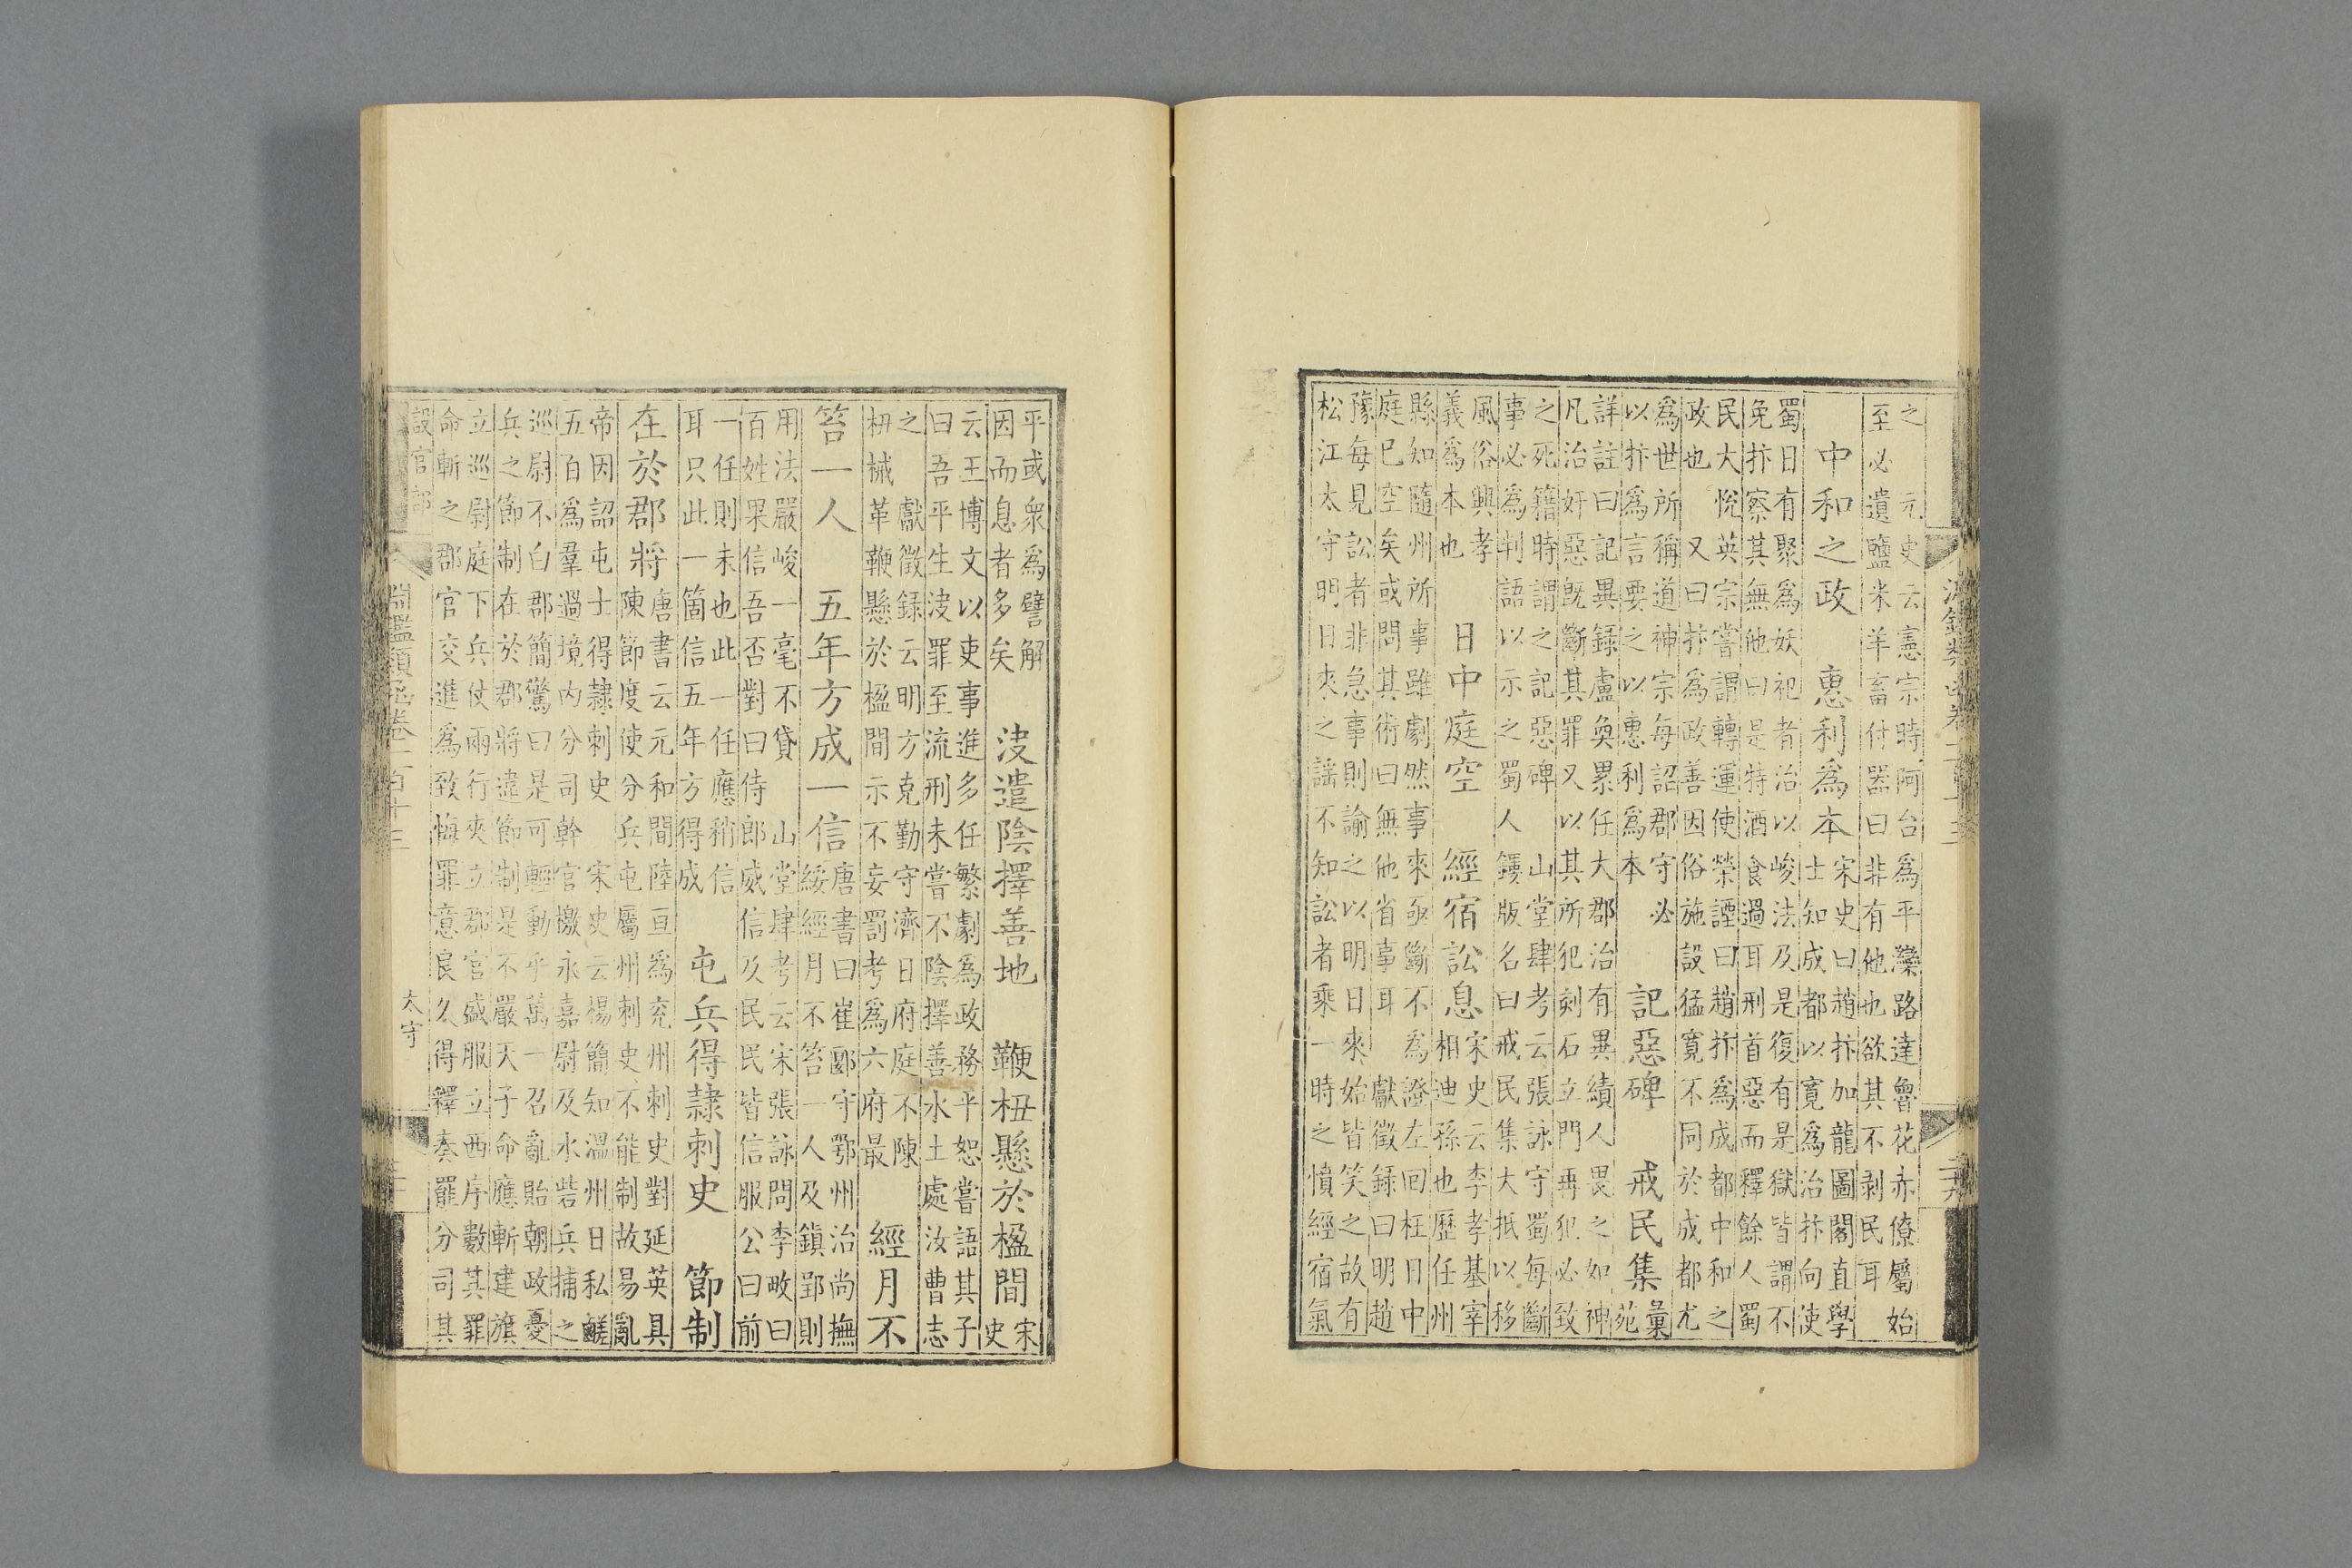 之　元史云憲宗時阿台為平灤路達魯花赤僚屬始
至必遺鹽米羊畜付器曰非有他也欲其不剥民耳
中和之政　惠利為本　宋史曰趙抃加龍圖閣直學
士知成都以寛為治抃向使
蜀日有聚為妖祀者治以峻法及是復有是獄皆謂不
免抃察其無他曰是特酒食過耳刑首惡而釋餘人蜀
民大悅英宗嘗謂轉運使榮諲曰趙抃為成都中和之
政也　又曰抃為政善因俗施設猛寛不同於成都尤
為世所稱道神宗每詔郡守必
以抃為言要之以惠利為本　記惡碑　戒民集　彙苑
詳註曰記異録盧奐累任大郡治有異績人畏之如神
凡治奸惡既斷其罪又以其所犯刻石立門再犯必致
之死籍時謂之記惡碑　山堂肆考云張詠守蜀每斷
事必為判語以示之蜀人鏤版名曰戒民集大抵以移
風俗興孝
義為本也　日中庭空　經宿訟息　宋史云李孝基宰
相迪孫也歷任州
縣知隨州所事雖劇然事來亟斷不為證左回枉日中
庭已空矣或問其術曰無他省事耳　獻徵録曰明趙
豫每見訟者非急事則諭之以明日來始皆笑之故有
松江太守明日來之謡不知訟者乘一時之憤經宿氣
平或衆為譬解
因而息者多矣　決遣陰擇善地　鞭杻懸於楹間　宋史
云王博文以吏事進多任繁劇為政務平恕嘗語其子
曰吾平生決罪至流刑未嘗不陰擇善水土處汝曹志
之　獻徵録云明方克勤守濟日府庭不陳
杻械革鞭懸於楹間示不妄罰考為六府最　經月不
笞一人　五年方成一信　唐書曰崔郾守鄂州治尚撫
綏經月不笞一人及鎮郢則
用法嚴峻一毫不貸　山堂肆考云宋張詠問李畋曰
百姓果信吾否對曰侍郎威信及民民皆信服公曰前
一任則未也此一任應稍信
耳只此一箇信五年方得成　屯兵得隷刺史　節制
在於郡將　唐書云元和間陸亘為兖州刺史對延英具
陳節度使分兵屯屬州刺史不能制故易亂
帝因詔屯士得隷刺史　宋史云楊簡知溫州日私鹺
五百為羣過境内分司幹官檄永嘉尉及水砦兵捕之
巡尉不白郡簡驚曰是可輕動乎萬一召亂貽朝政憂
兵之節制在於郡將違節制是不嚴天子命應斬建旗
立巡尉庭下兵仗兩行夾立郡官盛服立西序數其罪
命斬之郡官交進為致悔罪意良久得釋奏罷分司其
設官部
淵鑑類函卷一百十三
太守